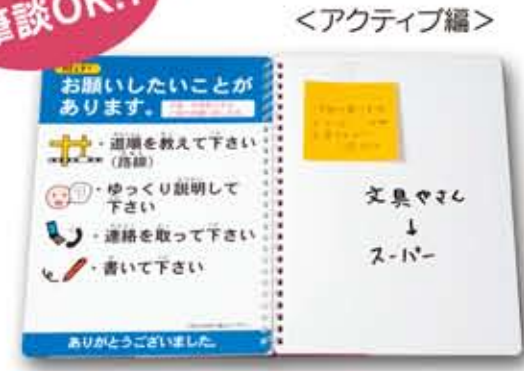 筆談OK!!
<アクティブ編>
お願いしたいことが
あります。
・道順を教えて下さい
(路線)
・ゆっくり説明して
下さい
・連絡を取って下さい
・書いて下さい
ありがとうございました。
文具やさん
↓
スーパー